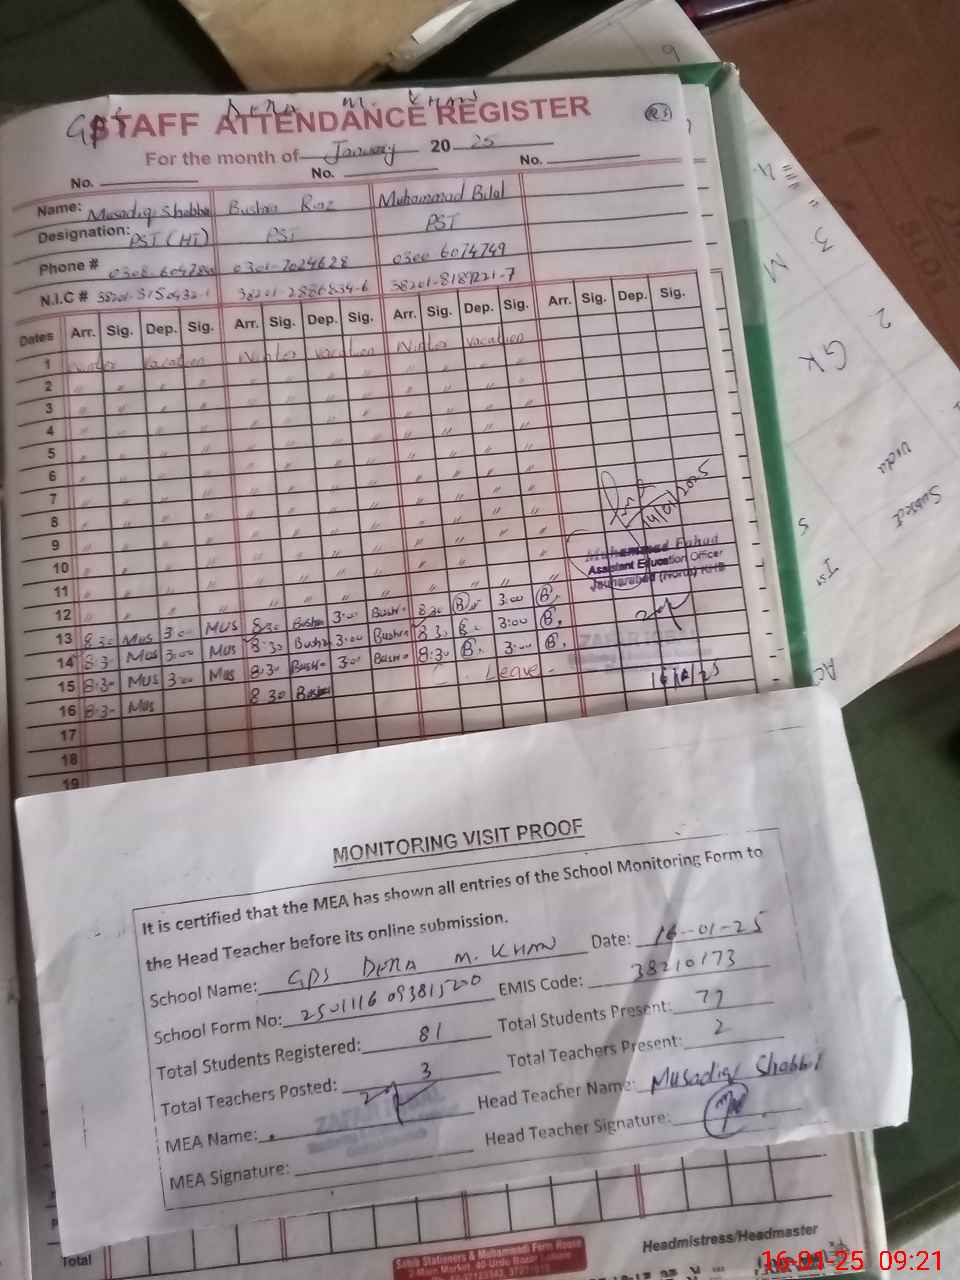 GPS DERA M. KHAN
STAFF ATTENDANCE REGISTER
For the month of January 20 25
No. No. No.
Name: Musadiq Shabbi Bushra Riaz Muhammad Bilal
Designation: PST (HT) PST PST
Phone # 0301-7024628 0300 6074749
N.I.C # 38201-2886834-6 38201-8189221-7
Dates Arr. Sig. Dep. Sig. Arr. Sig. Dep. Sig. Arr. Sig. Dep. Sig. Arr. Sig. Dep. Sig.
1 Winter vacation Winter vacation Winter vacation
2 " " " " " " " " " " " "
3 " " " " " " " " " " " "
4 " " " " " " " " " " " "
5 " " " " " " " " " " " "
6 " " " " " " " " " " " "
7 " " " " " " " " " " " "
8 " " " " " " " " " " " "
9 " " " " " " " " " " " "
10 " " " " " " " " " " " "
11 " " " " " " " " " " " "
12 " " " " " " " " " " " "
13 8:30 Mus 3:00 Mus 8:30 Bushra 3:00 Bushra 8:30 B. 3:00 B.
14 8:30 Mus 3:00 Mus 8:30 Bushra 3:00 Bushra 8:30 B. 3:00 B.
15 8:30 Mus 3:00 Mus 8:30 Bushra 3:00 Bushra 8:30 B. 3:00 B.
16 8:30 Mus 8:30 Bushra Leave
17
18
19
14/01/2025
Muhammad Fahad
Assistant Education Officer
Jauharabad (North) KHB
ZAFAR IQBAL
MONITORING VISIT PROOF
It is certified that the MEA has shown all entries of the School Monitoring Form to
the Head Teacher before its online submission.
School Name: GPS DERA M. KHAN Date: 16-01-25
School Form No: 2501116093815200 EMIS Code: 38210173
Total Students Registered: 81 Total Students Present: 77
Total Teachers Posted: 3 Total Teachers Present: 2
MEA Name: Head Teacher Name: Musadiq Shabbir
MEA Signature: Head Teacher Signature:
ZAFAR IQBAL
Total
Headmistress/Headmaster
Sahib Stationers & Muhammadi Form House
2-Main Market, 40-Urdu Bazar
16-01-25 09:21
6
3
M
2
GK
Urdu
Subject
S
1st